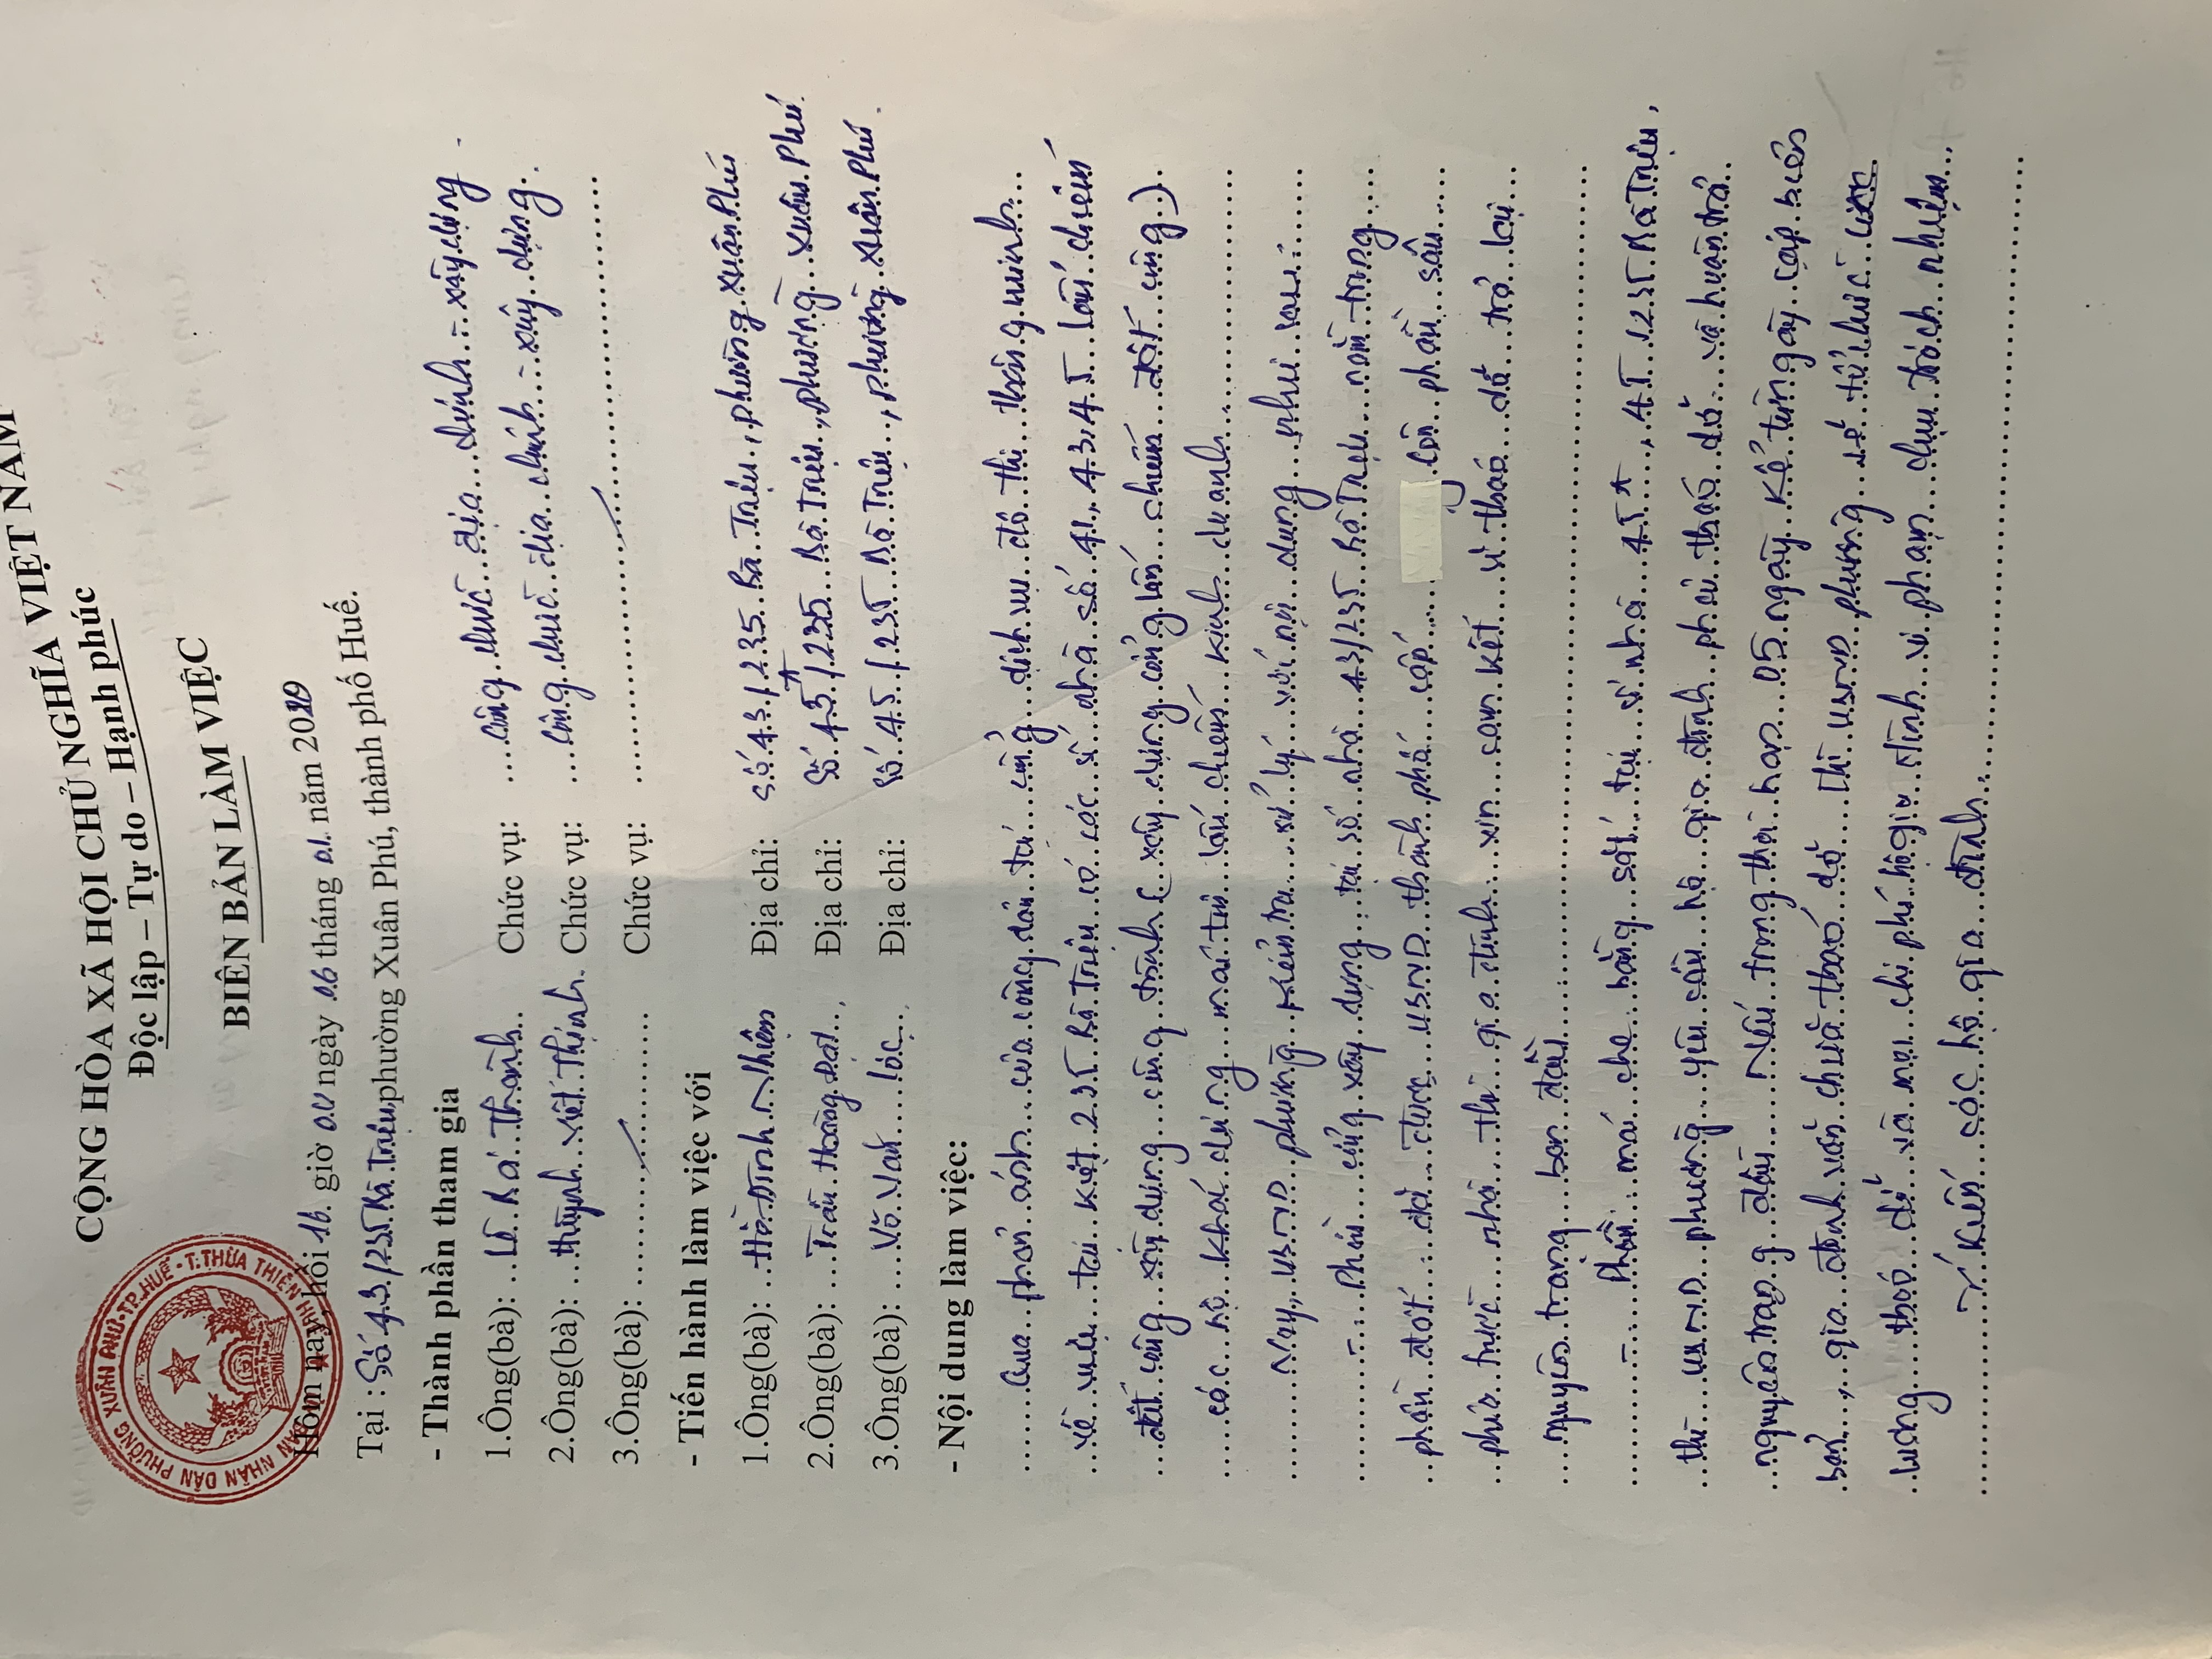 CỘNG HÒA XÃ HỘI CHỦ NGHĨA VIỆT NAM
Độc lập – Tự do – Hạnh phúc
BIÊN BẢN LÀM VIỆC
Hôm nay, hồi 16 giờ 00 ngày 06 tháng 01 năm 2020
Tại : Số 43/235 Bà Triệu phường Xuân Phú, thành phố Huế.
- Thành phần tham gia
1.Ông(bà): Lê Bá Thành Chức vụ: Công chức địa chính - xây dựng
2.Ông(bà): Huỳnh Viết Thịnh Chức vụ: Công chức địa chính - xây dựng
3.Ông(bà): Chức vụ:
- Tiến hành làm việc với
1.Ông(bà): Hồ Đình Nhiệm Địa chỉ: Số 43/235 Bà Triệu, phường Xuân Phú
2.Ông(bà): Trần Hoàng Đạt Địa chỉ: Số 45A/235 Bà Triệu, phường Xuân Phú
3.Ông(bà): Võ Văn Lộc Địa chỉ: Số 45/235 Bà Triệu, phường Xuân Phú
- Nội dung làm việc:
Qua phản ánh của công dân tại cổng dịch vụ đô thị thông minh
về việc tại kiệt 235 Bà Triệu có các số nhà số 41, 43, 45 lấn chiếm
đất công xây dựng công trình (xây dựng cổng lấn chiếm đất công)
các hộ khai dựng mái tôn lấn chiếm kinh doanh
Nay, UBND phường kiểm tra xử lý với nội dung như sau:
- Phần cổng xây dựng tại số nhà 43/235 Bà Triệu nằm trong
phần đất đã được UBND thành phố cấp Còn phần sân
phía trước nhà thì gia đình xin cam kết sẽ tháo dỡ trả lại
nguyên trạng ban đầu
- Phần mái che bằng sắt tại số nhà 45A, 45/235 Bà Triệu,
thì UBND phường yêu cầu hộ gia đình phải tháo dỡ và hoàn trả
nguyên trạng đầu Nếu trong thời hạn 05 ngày kể từ ngày lập biên
bản, gia đình vẫn chưa tháo dỡ thì UBND phường sẽ tổ chức
lượng tháo dỡ và mọi chi phí hộ gia đình vi phạm chịu trách nhiệm
Ý kiến các hộ gia đình
ỦY BAN NHÂN DÂN PHƯỜNG XUÂN PHÚ.TP.HUẾ - T.THỪA THIÊN HUẾ